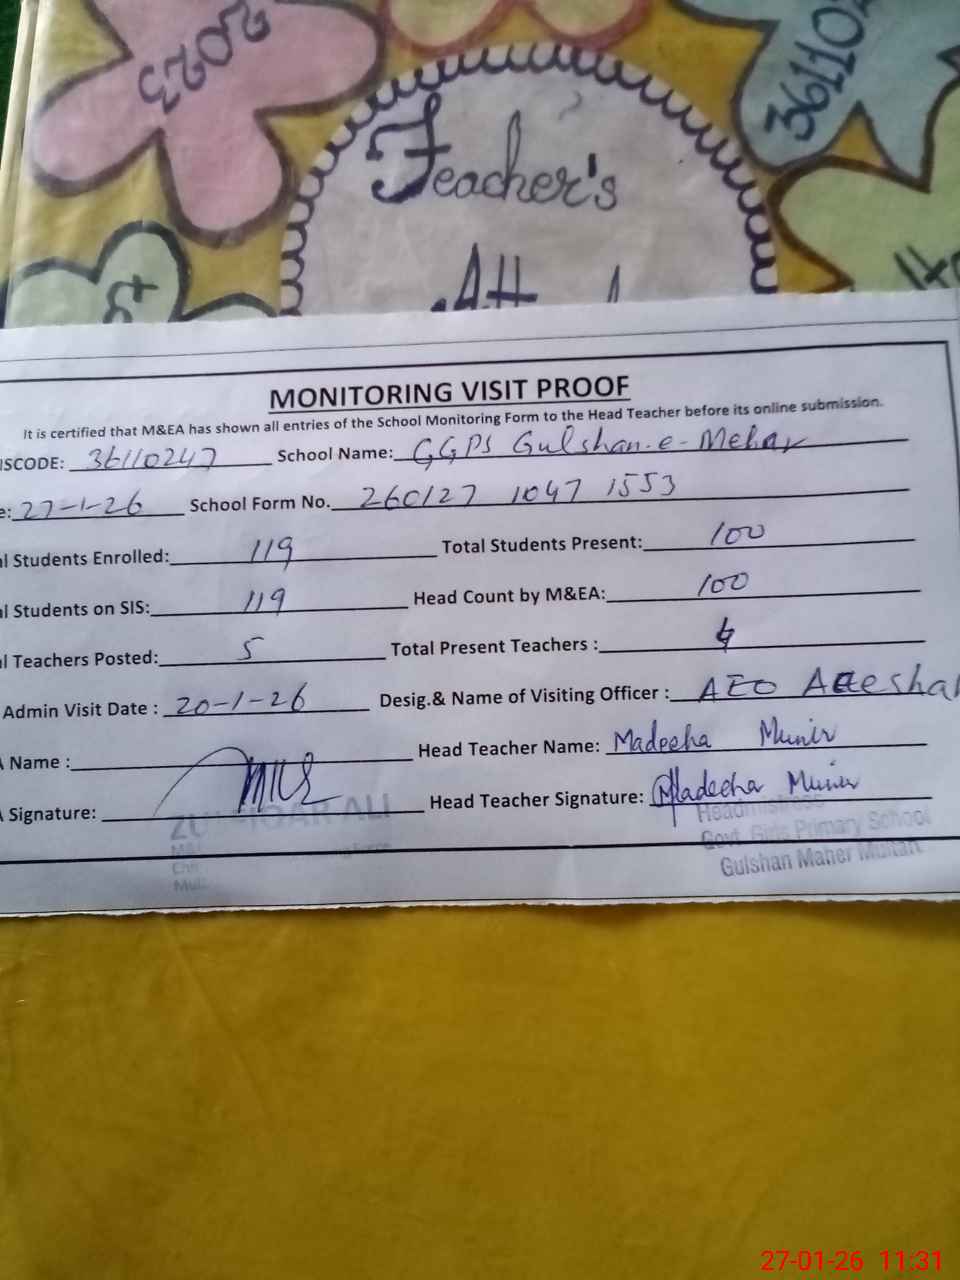 2023
361102
Teacher's
MONITORING VISIT PROOF
It is certified that M&EA has shown all entries of the School Monitoring Form to the Head Teacher before its online submission.
ISCODE: 36110247 School Name: GGPS Gulshan-e-Mehar
e: 27-1-26 School Form No. 260127 1047 1553
l Students Enrolled: 119 Total Students Present: 100
l Students on SIS: 119 Head Count by M&EA: 100
l Teachers Posted: 5 Total Present Teachers : 4
Admin Visit Date : 20-1-26 Desig.& Name of Visiting Officer : AEO
A Name : Head Teacher Name: Madeeha Munir
A Signature: Head Teacher Signature: Madeeha Munir
ALI
Headmistress
Govt. Girls Primary School
Gulshan Maher Multan
27-01-26 11:31